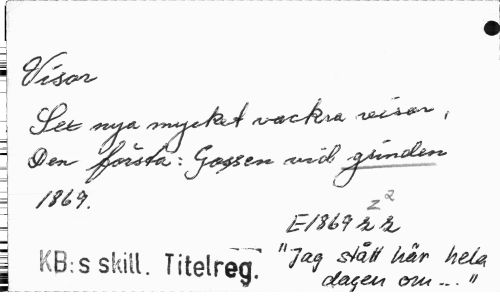 Visor
Sex nya mycket vackra visor,
Den första: Gossen vid grinden
1869.
z 2
E1869 z z
KB:s skill. Titelreg.
"Jag stått här hela
dagen om..."